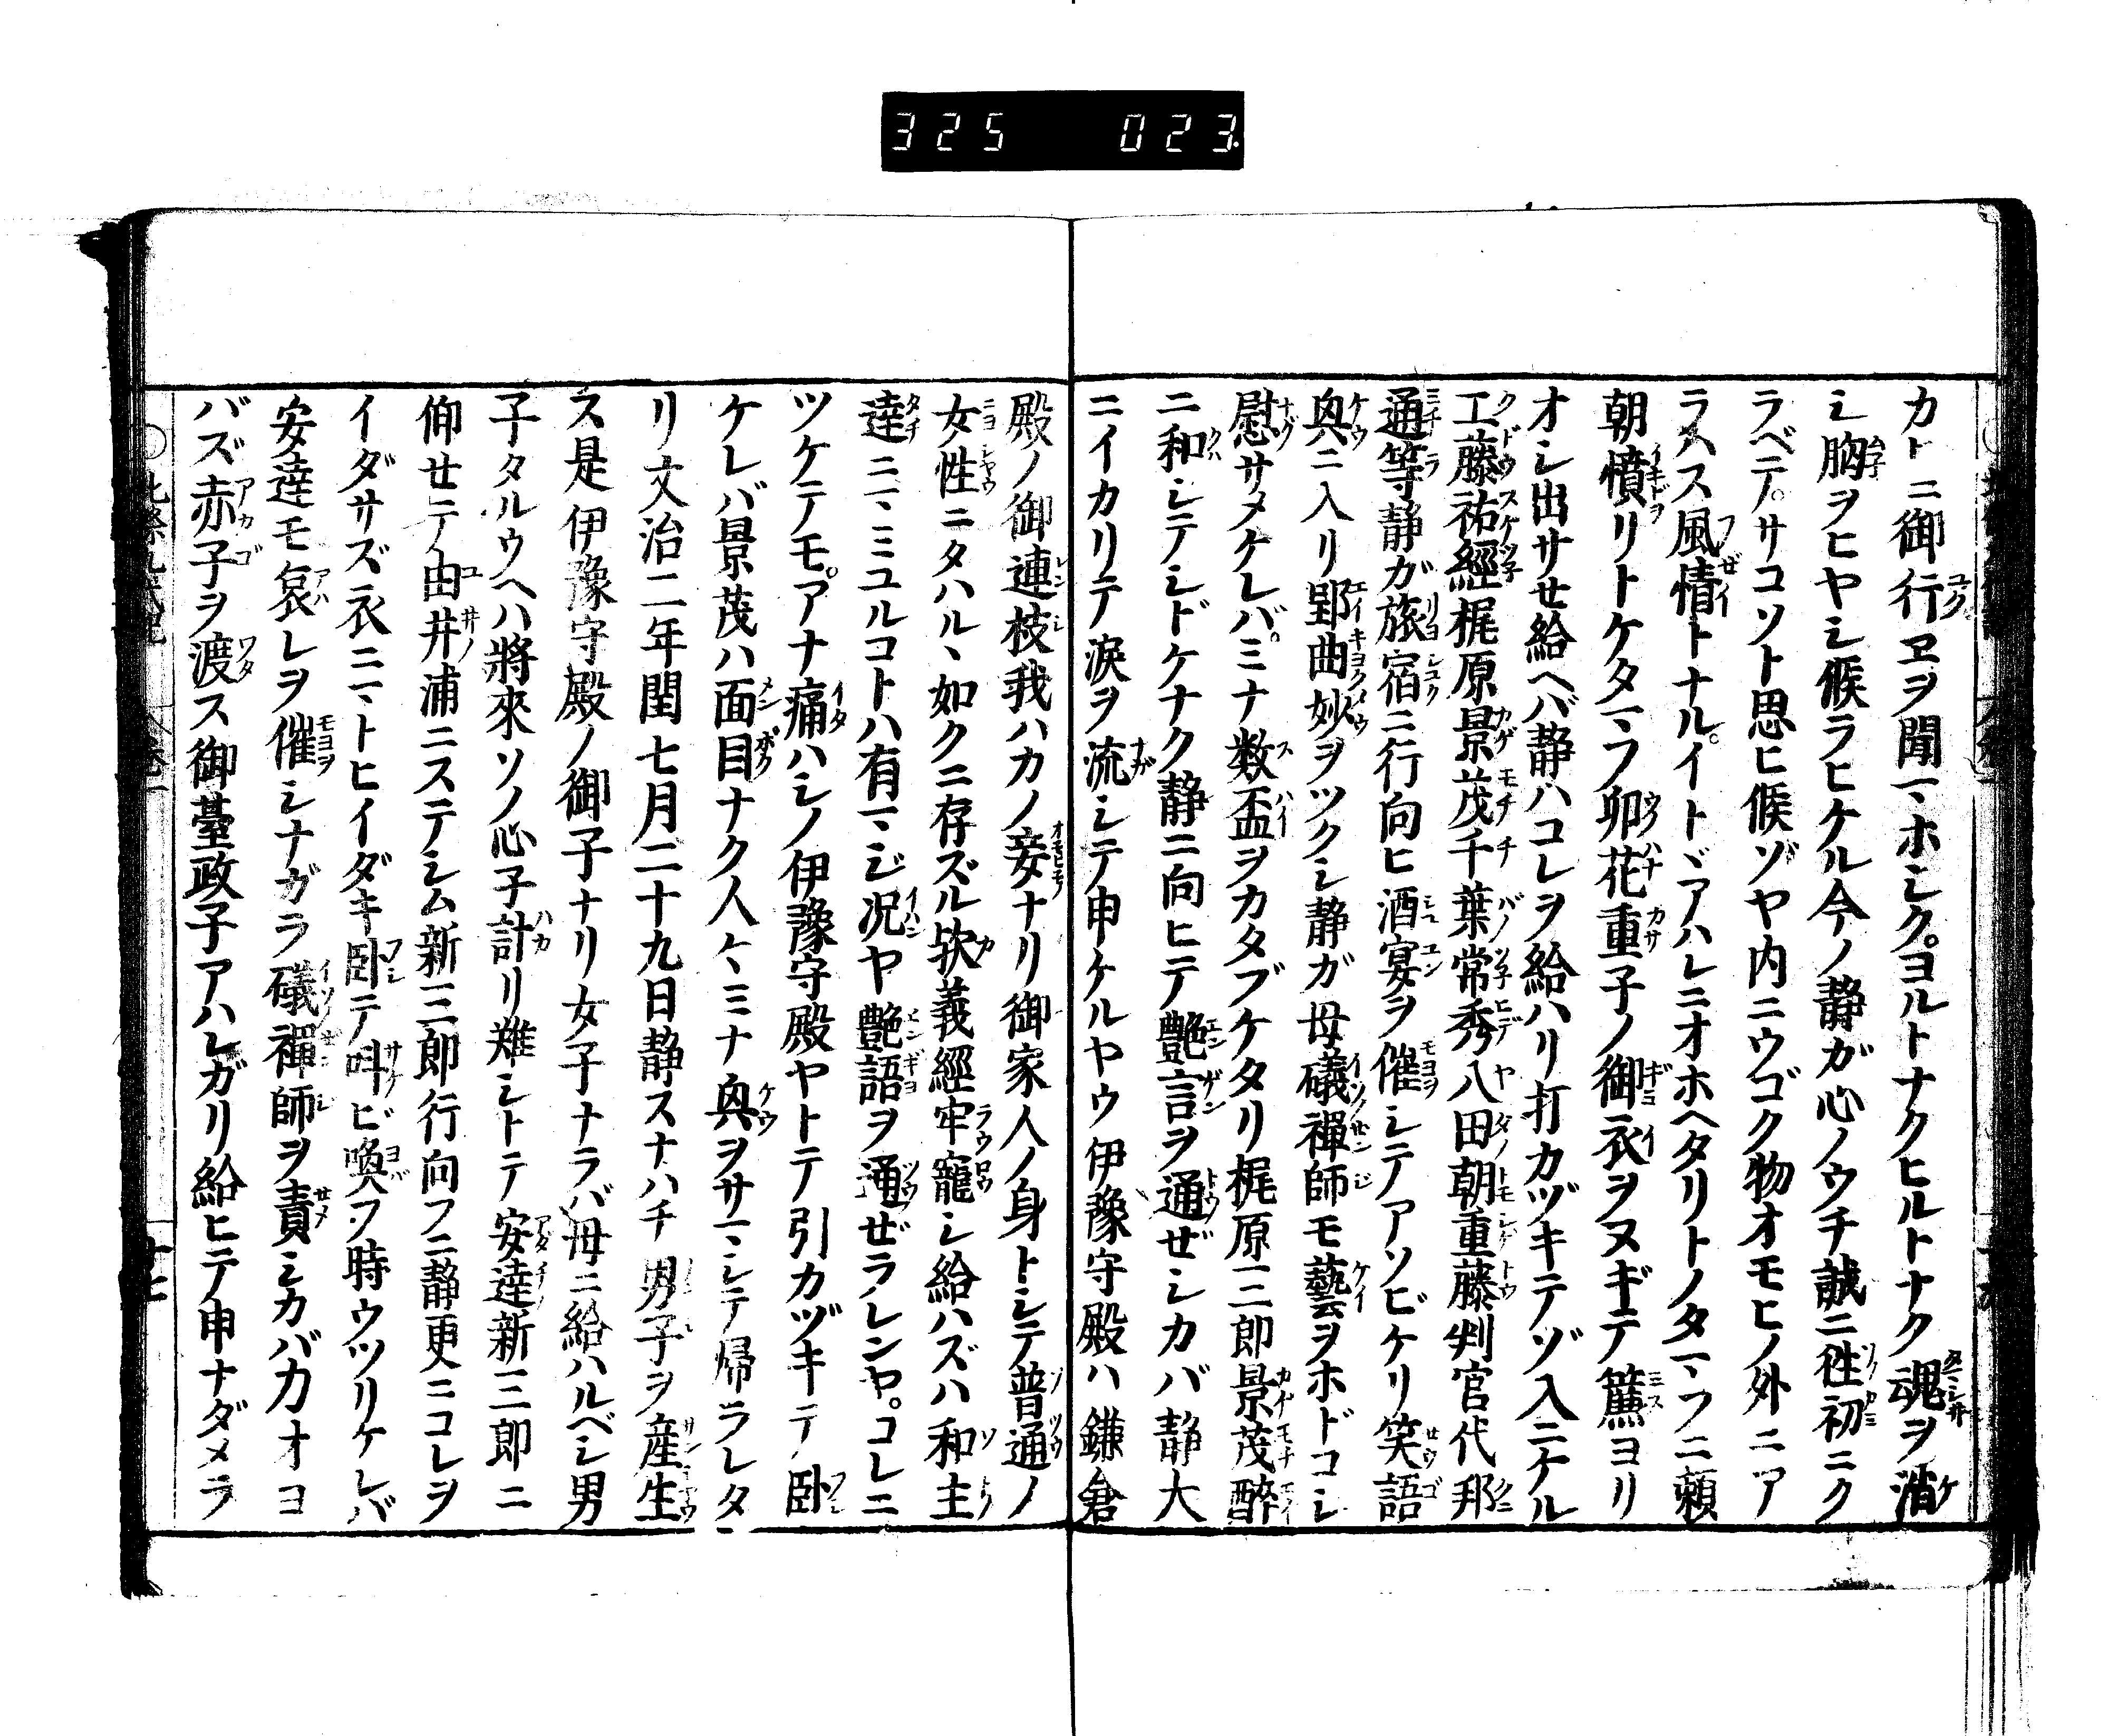 325 023
カトニ御行ヱヲ聞マホシク。ヨルトナクヒルトナク魂ヲ消
シ胸ヲヒヤシ候ラヒケル今ノ静ガ心ノウチ誠ニ徃初ニク
ラベテ。サコソト思ヒ候ゾヤ内ニウゴク物オモヒノ外ニア
ラハス風情トナル。イトヾアハレニオホヘタリトノタマフニ頼
朝憤リトケタマフ卯花重子ノ御衣ヲヌギテ簾ヨリ
オシ出サせ給ヘバ静ハコレヲ給ハリ打カヅキテゾ入ニケル
工藤祐經梶原景茂千葉常秀八田朝重藤判官代邦
通等静ガ旅宿ニ行向ヒ酒宴ヲ催シテアソビケリ笑語
興ニ入リ郢曲妙ヲツクシ静ガ母礒禪師モ藝ヲホドコシ
慰サメケレバ。ミナ数盃ヲカタブケタリ梶原三郎景茂醉
ニ和シテシドケナク静ニ向ヒテ艶言ヲ通ぜシカバ静大
ニイカリテ涙ヲ流シテ申ケルヤウ伊豫守殿ハ鎌倉
殿ノ御連枝我ハカノ妾ナリ御家人ノ身トシテ普通ノ
女性ニタハルヽ如クニ存ズル欤義經牢籠シ給ハズハ和主
達ニマミユルコトハ有マジ况ヤ艶語ヲ通ぜラレンヤ。コレニ
ツケテモ。アナ痛ハシノ伊豫守殿ヤトテ引カヅキテ臥
ケレバ景茂ハ面目ナク人〻ミナ興ヲサマシテ帰ラレタ
リ文治二年閏七月二十九日静スナハチ男子ヲ産生
ス是伊豫守殿ノ御子ナリ女子ナラバ母ニ給ハルベシ男
子タルウヘハ將來ソノ心子計リ難シトテ安達新三郎ニ
仰せテ由井浦ニステシム新三郎行向フニ静更ニコレヲ
イダサズ衣ニマトヒイダキ臥テ呌ビ喚フ時ウツリケレバ
安達モ哀レヲ催シナガラ礒禪師ヲ責シカバ力オヨ
バズ赤子ヲ渡ス御臺政子アハレガリ給ヒテ申ナダメラ